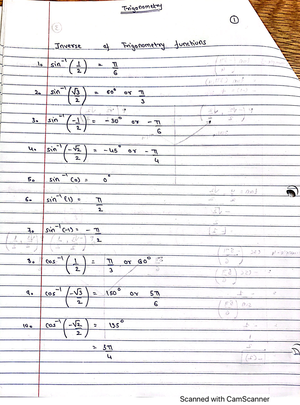 Trigonometry
1
Inverse of Trigonometry functions
1. sin⁻¹ (1/2) = π/6
2. sin⁻¹ (√3/2) = 60° or π/3
3. sin⁻¹ (-1/2) = -30° or -π/6
4. sin⁻¹ (-√2/2) = -45° or -π/4
5. sin⁻¹ (0) = 0°
6. sin⁻¹ (1) = π/2
7. sin⁻¹ (-1) = -π/2
8. cos⁻¹ (1/2) = π/3 or 60°
9. cos⁻¹ (-√3/2) = 150° or 5π/6
10. cos⁻¹ (-√2/2) = 135°
= 3π/4
Scanned with CamScanner